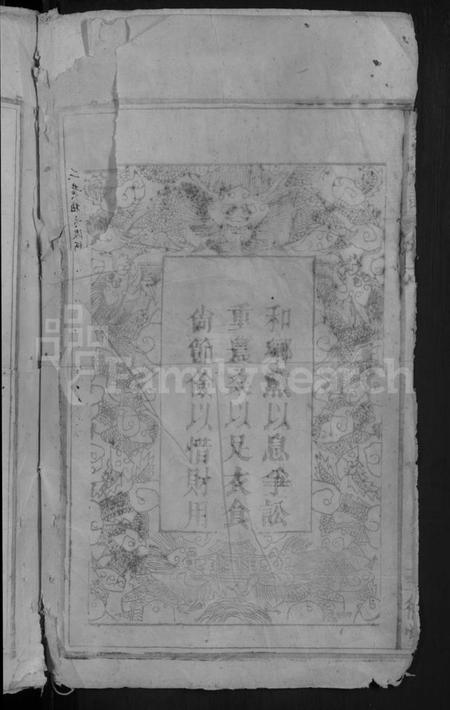 和鄉黨以息爭訟
重農桑以足衣食
尚節儉以惜財用
FamilySearch